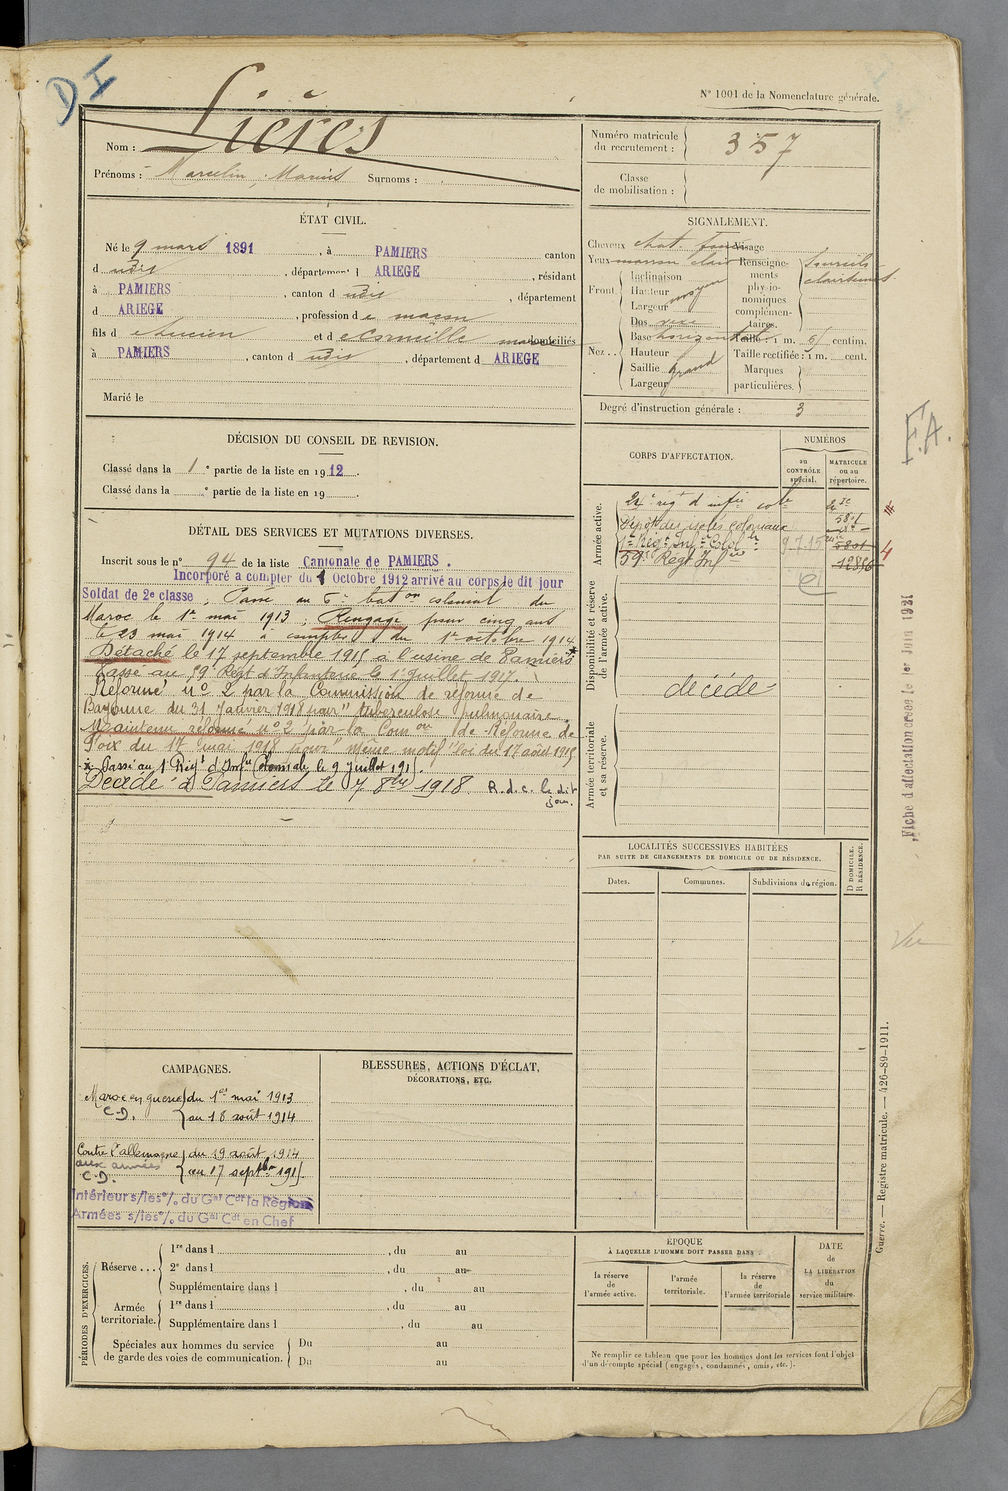 D I
N° 1001 de la Nomenclature générale.
Nom : Lières
Prénoms : Marcelin, Marius Surnoms :
Numéro matricule du recrutement : 357
Classe de mobilisation :
ÉTAT CIVIL.
Né le 9 mars 1891, à PAMIERS canton
d udis, département d ARIEGE, résidant
à PAMIERS, canton d udis, département
d ARIEGE, profession de maçon
fils d et d domiciliés
à PAMIERS, canton d udis, département d ARIEGE
Marié le
SIGNALEMENT.
Cheveux chat foncé Visage
Yeux marron clair
Front. Inclinaison
Hauteur moyen
Largeur
Nez. Dos
Base horizontal
Hauteur
Saillie grand
Largeur
Renseignements physionomiques complémentaires. Sourcils
Taille : 1 m. centim.
Taille rectifiée : 1 m. cent.
Marques particulières.
Degré d'instruction générale : 3
DÉCISION DU CONSEIL DE REVISION.
Classé dans la 1e partie de la liste en 1912.
Classé dans la e partie de la liste en 19 .
DÉTAIL DES SERVICES ET MUTATIONS DIVERSES.
Inscrit sous le n° 94 de la liste Cantonale de PAMIERS.
Incorporé a compter du 1 Octobre 1912 arrivé au corps le dit jour
Soldat de 2e classe ; Passé au 6e baton colonial du
Maroc le 1er mai 1913 ; Rengagé pour cinq ans
le 23 mai 1914 à compter du 1er octobre 1914
Détaché le 17 septembre 1915 à l'usine de Pamiers
Passé au 59e Régt d'Infanterie le 1er juillet 1917.
Réformé n° 2 par la Commission de réforme de
Bayonne du 31 Janvier 1918 pour "tuberculose pulmonaire.
Maintenu réformé n° 2 par la Comon de Réforme de
Foix du 17 mai 1918 pour même motif "loi du 17 août 1915
x Passé au 1er Régt d'Infie Coloniale le 9 juillet 1915.
Décédé à Pamiers le 7 8bre 1918 R.d.c. le dit
jour.
CORPS D'AFFECTATION.
NUMÉROS
au CONTRÔLE spécial.
MATRICULE ou au répertoire.
Armée active.
24e régt d'infie cole
Dépôt des isolés coloniaux 5801
1er Régt Infie Colole 9.7.15 5801
59e Régt Infie
Disponibilité et réserve de l'armée active.
décédé
Armée territoriale et sa réserve.
LOCALITÉS SUCCESSIVES HABITÉES
PAR SUITE DE CHANGEMENTS DE DOMICILE OU DE RÉSIDENCE.
Dates.
Communes.
Subdivisions de région.
D DOMICILE. R RÉSIDENCE.
F.A.
Fiche d'affectation créée le 1er Juin 1921
Vu
Guerre. — Registre matricule. — 426-89-1911.
CAMPAGNES.
Maroc en guerre du 1er mai 1913
C-D. au 18 août 1914
Contre l'allemagne du 19 août 1914
aux armées au 17 septbre 1915.
C-D.
Intérieur s/les % du Gal Cdt la Région
Armées s/les % du Gal Cdt en Chef
BLESSURES, ACTIONS D'ÉCLAT,
DÉCORATIONS, ETC.
PÉRIODES D'EXERCICES.
Réserve ...
1re dans l , du au
2e dans l , du au
Supplémentaire dans l , du au
Armée territoriale.
1re dans l , du au
Supplémentaire dans l , du au
Spéciales aux hommes du service
de garde des voies de communication.
Du au
Du au
ÉPOQUE
À LAQUELLE L'HOMME DOIT PASSER DANS :
la réserve de l'armée active.
l'armée territoriale.
la réserve de l'armée territoriale
DATE de LA LIBÉRATION du service militaire.
Ne remplir ce tableau que pour les hommes dont les services font l'objet
d'un décompte spécial (engagés, condamnés, omis, etc.).